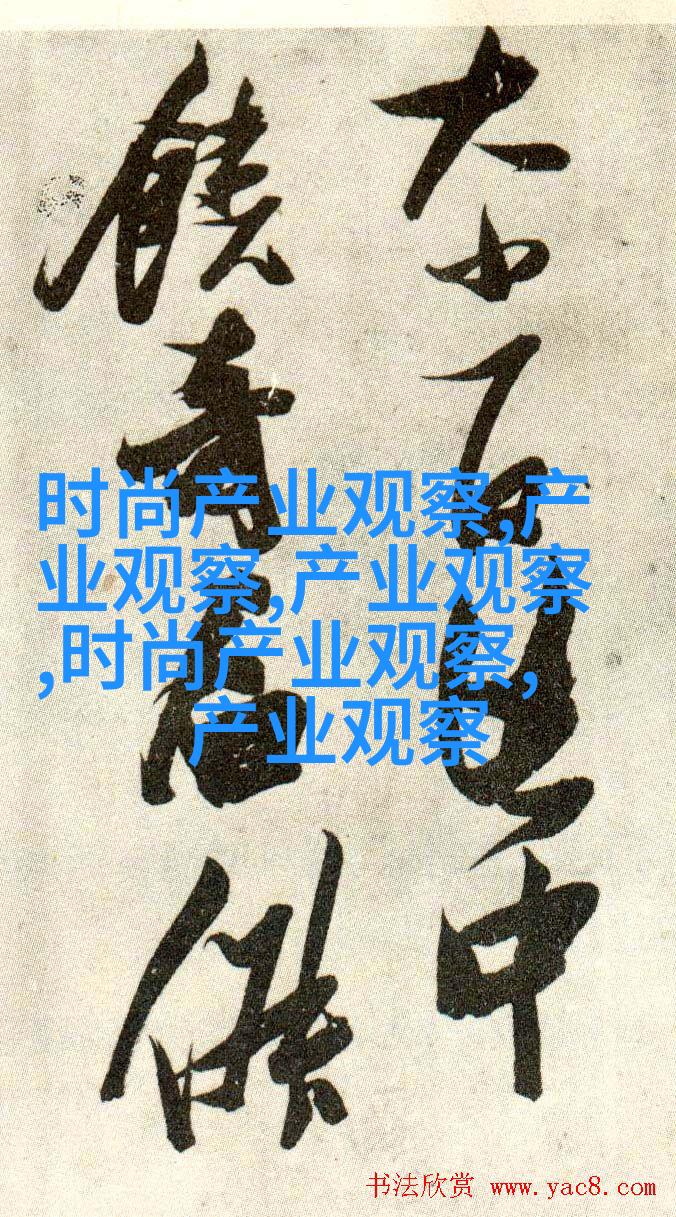 大小中
饒奇傑
时尚产业观察,产
业观察,产业观察
,时尚产业观察,
产业观察
书法欣赏 www.yac8.com